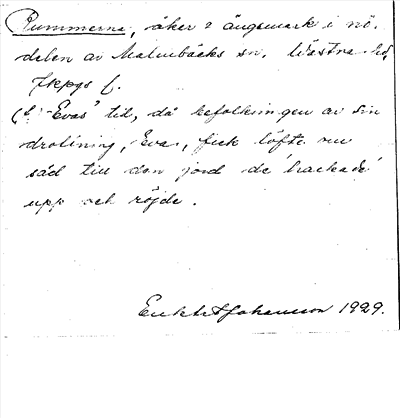 Rummerna, åker & ängsmark i nö.
delen av Malmbäcks sn. Västra hd,
Jkpgs l.
(I "Evas" tid, då befolkningen av sin
drottning, Eva, fick löfte om
såd till den jord de 'hackade'
upp och röjde.
Johansson 1929.